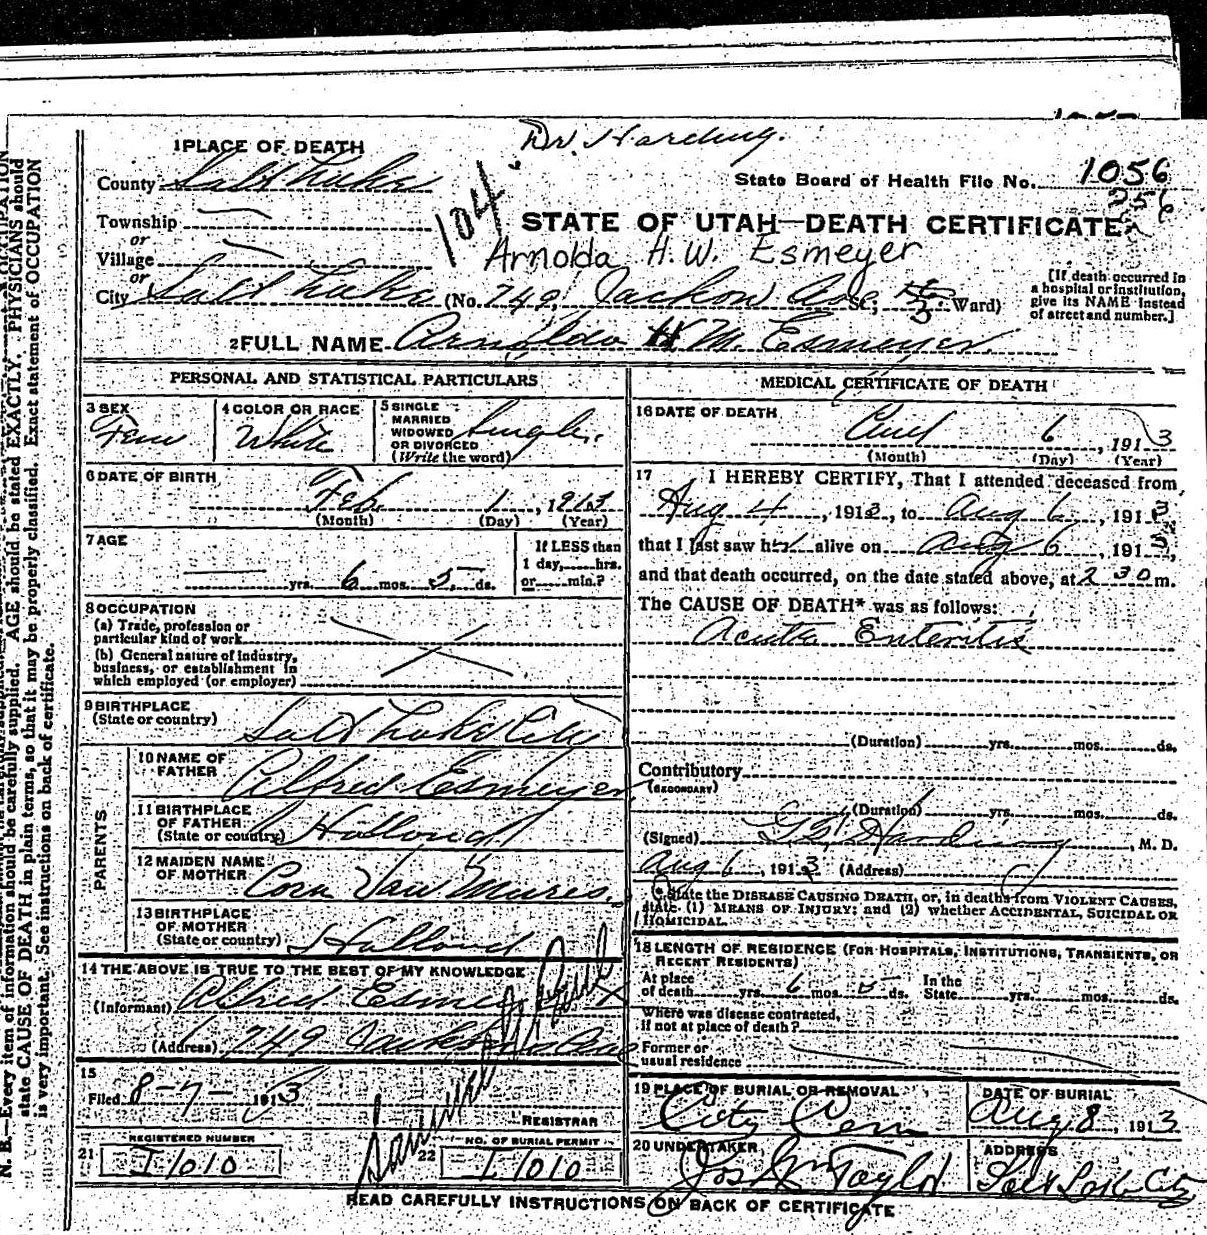 Dr. Harding.
1 PLACE OF DEATH
County Salt Lake
State Board of Health File No. 1056
256
104
Township
or
STATE OF UTAH—DEATH CERTIFICATE
Village
or
Arnolda H. W. Esmeyer
City Salt Lake (No. 749, Jackson Ave, St.; 5 Ward)
[If death occurred in a hospital or institution, give its NAME instead of street and number.]
2 FULL NAME Arnolda H. M. Esmeyer.
PERSONAL AND STATISTICAL PARTICULARS
3 SEX Fem
4 COLOR OR RACE White
5 SINGLE MARRIED WIDOWED OR DIVORCED (Write the word) Single.
6 DATE OF BIRTH
Feb. 1, 1913
(Month) (Day) (Year)
7 AGE
yrs. 6 mos. 5 ds.
If LESS than 1 day, hrs. or min.?
8 OCCUPATION
(a) Trade, profession or particular kind of work
(b) General nature of industry, business, or establishment in which employed (or employer)
9 BIRTHPLACE
(State or country) Salt Lake City
PARENTS
10 NAME OF FATHER Alfred Esmeyer
11 BIRTHPLACE OF FATHER (State or country) Holland
12 MAIDEN NAME OF MOTHER Cora Van
13 BIRTHPLACE OF MOTHER (State or country) Holland
14 THE ABOVE IS TRUE TO THE BEST OF MY KNOWLEDGE
(Informant) Alfred Esmeyer
(Address) 749 Jackson Ave
15
Filed 8-7- 1913
REGISTRAR
21 REGISTERED NUMBER I1010
22 NO. OF BURIAL PERMIT I1010
MEDICAL CERTIFICATE OF DEATH
16 DATE OF DEATH
Aug 6, 1913
(Month) (Day) (Year)
17 I HEREBY CERTIFY, That I attended deceased from
Aug 4, 1913, to Aug 6, 1913,
that I last saw her alive on Aug 6, 1913,
and that death occurred, on the date stated above, at 2 30 m.
The CAUSE OF DEATH* was as follows:
Acute Enteritis
(Duration) yrs. mos. ds.
Contributory
(SECONDARY)
(Duration) yrs. mos. ds.
(Signed) Harding, M. D.
Aug 6, 1913 (Address)
*State the DISEASE CAUSING DEATH, or, in deaths from VIOLENT CAUSES, state (1) MEANS OF INJURY; and (2) whether ACCIDENTAL, SUICIDAL OR HOMICIDAL.
18 LENGTH OF RESIDENCE (FOR HOSPITALS, INSTITUTIONS, TRANSIENTS, OR RECENT RESIDENTS)
At place of death yrs. 6 mos. 5 ds. In the State yrs. mos. ds.
Where was disease contracted, if not at place of death?
Former or usual residence
19 PLACE OF BURIAL OR REMOVAL City Cem
DATE OF BURIAL Aug 8, 1913.
20 UNDERTAKER Jos Wm Taylor
ADDRESS Salt Lake City
READ CAREFULLY INSTRUCTIONS ON BACK OF CERTIFICATE
N. B.—Every item of information should be carefully supplied. AGE should be stated EXACTLY. PHYSICIANS should
state CAUSE OF DEATH in plain terms, so that it may be properly classified. Exact statement of OCCUPATION
is very important. See instructions on back of certificate.